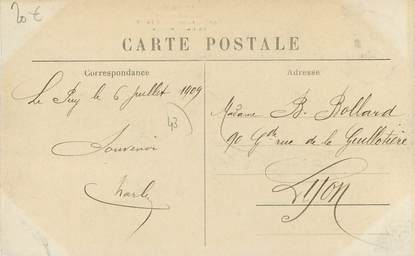 20 €
CARTE POSTALE
Correspondance
Adresse
Le Puy le 6 Juillet 1909
43
Souvenir
Madame B. Bollard
90 Gde rue de la Guillotière
Lyon